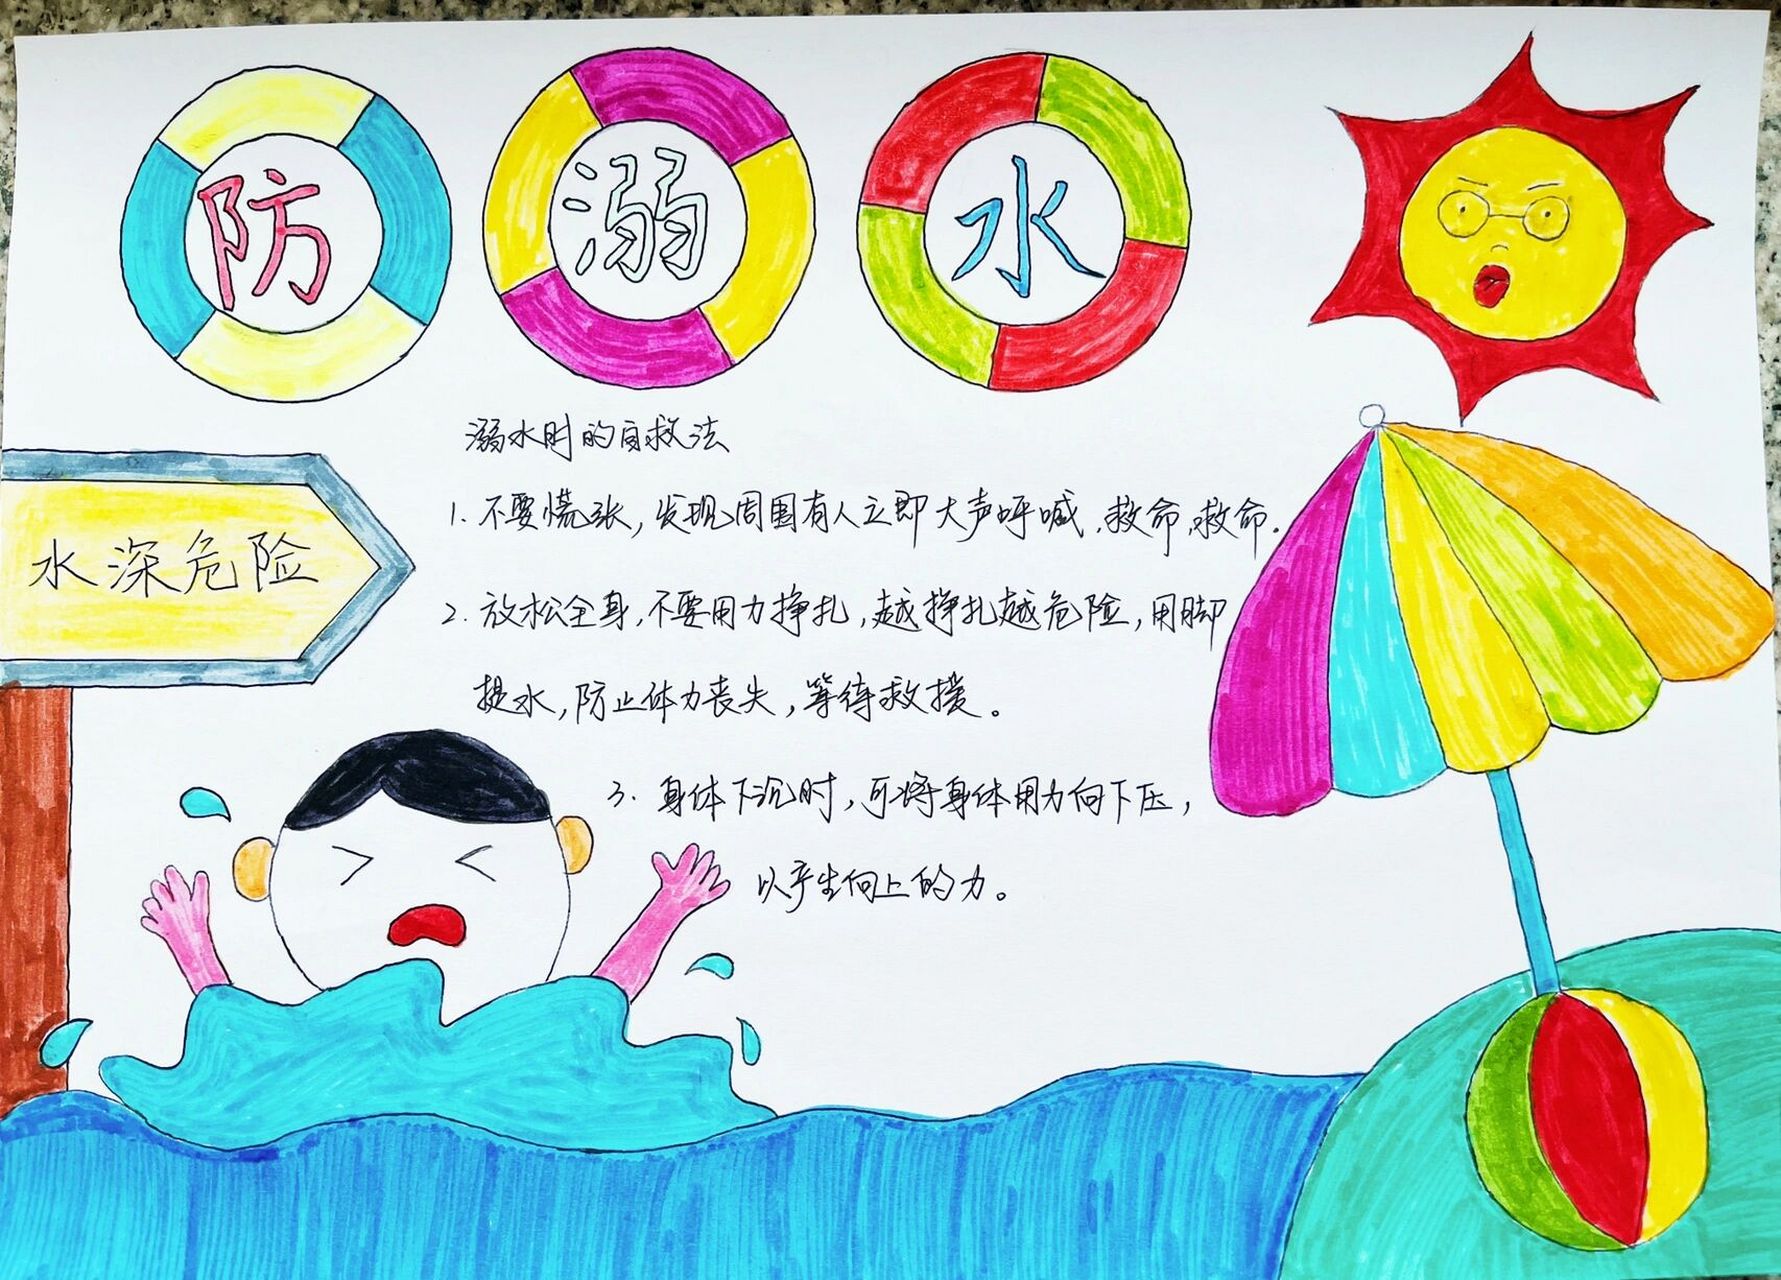 防溺水
溺水时的自救法
1. 不要慌张,发现周围有人立即大声呼喊,救命,救命.
水深危险
2. 放松全身,不要用力挣扎,越挣扎越危险,用脚
提水,防止体力丧失,等待救援。
3. 身体下沉时,可将身体用力向下压,
以产生向上的力。